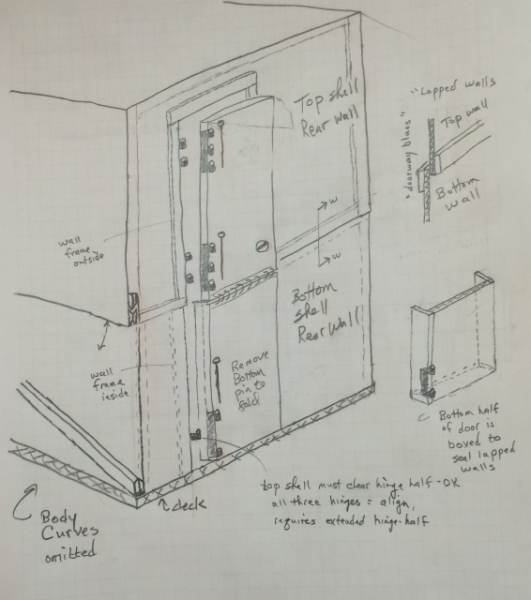 Top shell
Rear Wall
"Lapped walls
"doorway blues"
Top wall
Bottom
wall
wall
frame
outside
w
w
Bottom
shell
Rear Wall
wall
frame
inside
Remove
Bottom
pin to
fold
Bottom half
of door is
boxed to
seal lapped
walls
top shell must clear hinge half - OK
all three hinges = align,
requires extended hinge-half
deck
Body
Curves
omitted